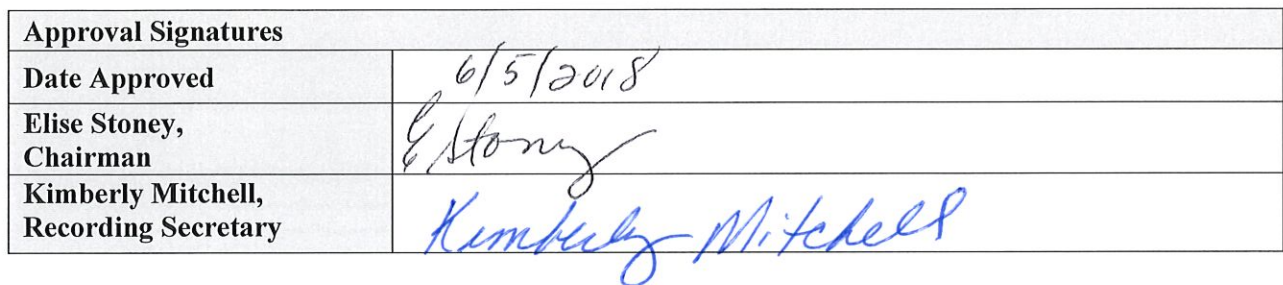 Approval Signatures
Date Approved 6/5/2018
Elise Stoney,
Chairman
EStoney
Kimberly Mitchell,
Recording Secretary
Kimberly Mitchell